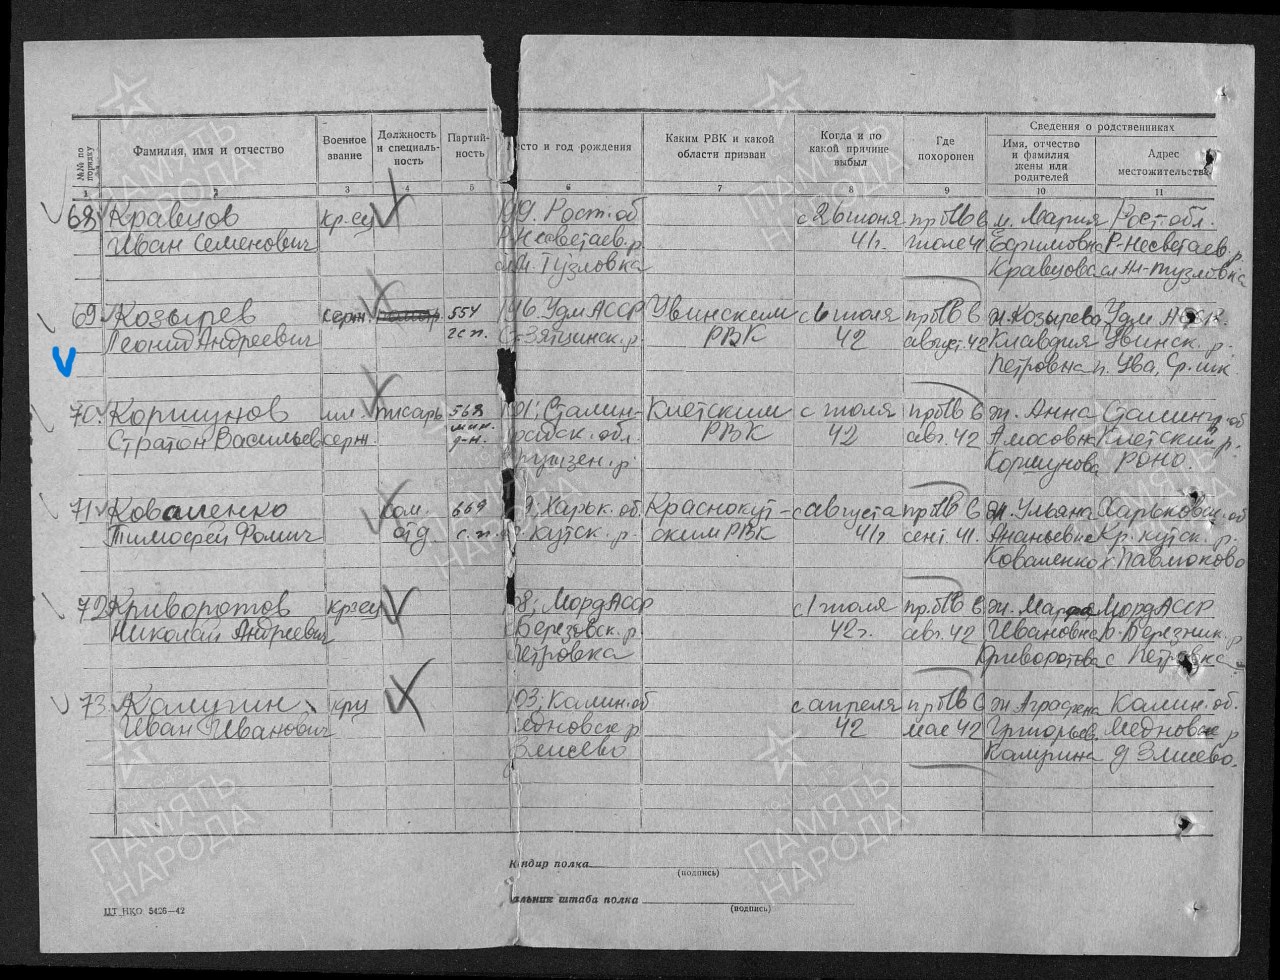 №№ по порядку
Фамилия, имя и отчество
Военное звание
Должность и специальность
Партийность
есто и год рождения
Каким РВК и какой области призван
Когда и по какой причине выбыл
Где похоронен
Сведения о родственниках
Имя, отчество и фамилия жены или родителей
Адрес местожительства
1 2 3 4 5 6 7 8 9 10 11
68 Кравцов кр-ец Рост. об с июня пр. б/в м. Мария Рост. обл.
Иван Семенович Несветаев. р 41г. июле 41 Ефимовна Р-Несветаев. р.
Тузловка Кравцова сл. М-Тузловка
69 Козырев серж. 554 Удм АССР Увинским с июля пр. б/в ж. Козырева Удм АССР
Леонид Андреевич гсп. Зятцинск. р. РВК 42 август. 42 Клавдия Увинск. р.
Петровна п. Ува,
70 Коршунов мл. писарь 568 01; Сталин- Клетским с июля пр. б/в ж. Анна Сталингр. об
Стратон Васильев серж. мин. обл. РВК 42 авг. 42 Амосовна Клетский р.
д-н. Коршунова РОНО.
71 Коваленко ком. 669 9; Харьк. об. Краснокут- с августа пр. б/в ж. Ульяна Харьковск. об
Тимофей Фомич отд с. п. Кутск. р. ским РВК 41г сент. 41. Ананьевна Кр. кутск. р.
Коваленко х. Павлюково
72 Криворотов кр-ец 8; Морд АССР с июля пр. б/в ж. Морд АССР
Николай Андреевич Березовск. р 42г. авг. 42 Ивановна Б-Березник. р
Петровка Криворотова с Петровка
73 Калугин кр-ц 03; Калин. об с апреля пр. б/в ж. Аграфена Калин. об.
Иван Иванович едновск р 42 мае 42 Григорьев. Медновск р
Элисево Калугина д Элисево.
ндир полка
(подпись)
альник штаба полка
(подпись)
ЦТ НКО 5426—42
ПАМЯТЬ
НАРОДА